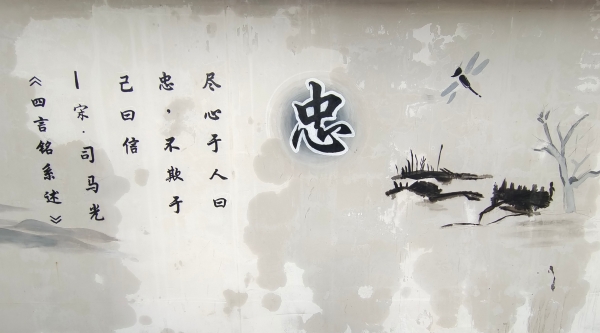 忠
尽心于人曰
忠·不欺于
己曰信
—宋·司马光
《四言铭系述》